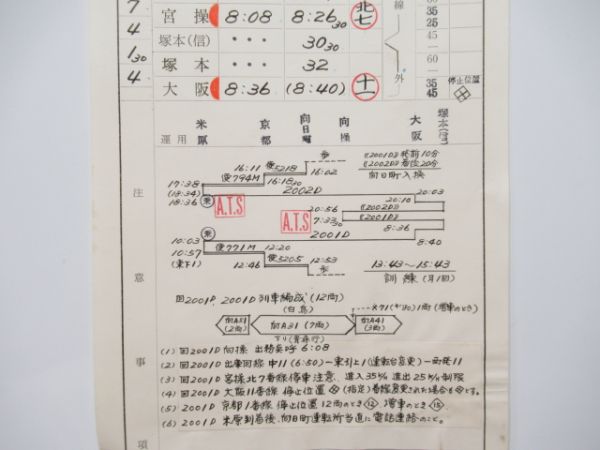 7 宮操 8:08 8:26 30 北七 線 35 25
4 塚本(信) ・・・ 30 30
1 30 塚本 ・・・ 32 外 60
4 大阪 8:36 (8:40) 十一 35 45 停止位置
運用 米原 京都 向日町 向操 大阪 塚本(信)
16:11 便521B 歩
17:38 便794M 16:18 30 16:02 向日町入換
(18:34) 2002D 20:03
18:36 乗 A.T.S 20:56 回2002D 20:10
A.T.S 7:33 30 回2001D
乗 2001D 8:36
10:03 8:40
10:57 便771M 12:20
(東下1) 12:46 便5205 12:53 13:43〜15:43
歩 訓練(月1回)
注意事項
回2001D, 2001D列車編成(12両)
(白鳥)
前A51 (2両) 前A31 (7両) 前A41 (3両)
下り(青森行)
(1) 回2001D 向操 出務点呼 6:08
(2) 回2001D 出庫回線 中11 (6:50)〜東引上1(運転台変更)〜西発11
(3) 回2001D 宮操北7番線停車注意、進入35K/h 進出25K/h制限
(4) 回2001D 大阪11番線 停止位置 (指定)着線変更された場合もとする。
(5) 2001D 京都1番線 停止位置 12両のとき 12 増車のとき
(6) 2001D 米原到着後、向日町運転所当直に電話連絡のこと。